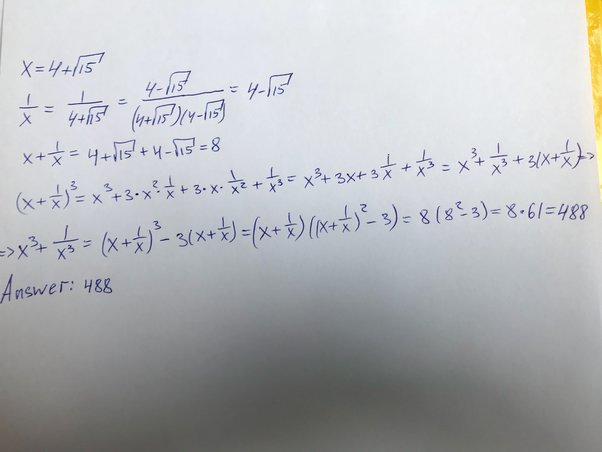 x=4+√15
1/x = 1/(4+√15) = (4-√15)/((4+√15)(4-√15)) = 4-√15
x+1/x = 4+√15+4-√15=8
(x+1/x)³ = x³+3·x²·1/x+3·x·1/x²+1/x³ = x³+3x+3 1/x+1/x³ = x³+1/x³+3(x+1/x)=>
=> x³+1/x³ = (x+1/x)³-3(x+1/x)=(x+1/x)((x+1/x)²-3)=8(8²-3)=8·61=488
Answer: 488